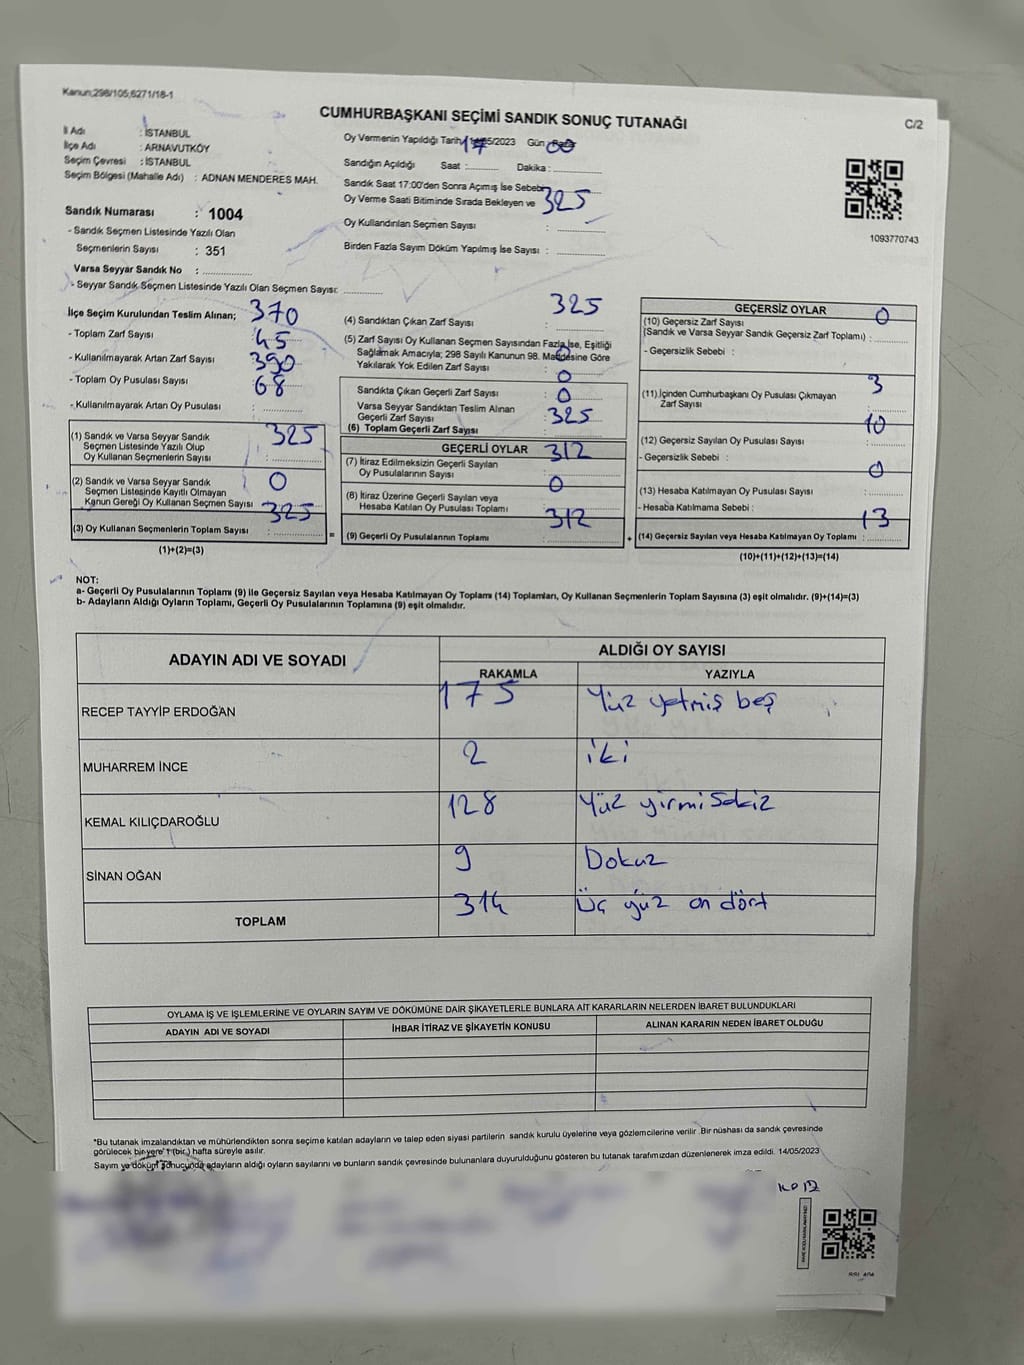 Kanun;298/105;6271/18-1
CUMHURBAŞKANI SEÇİMİ SANDIK SONUÇ TUTANAĞI
C/2
İl Adı : İSTANBUL
İlçe Adı : ARNAVUTKÖY
Seçim Çevresi : İSTANBUL
Seçim Bölgesi (Mahalle Adı) : ADNAN MENDERES MAH.
Sandık Numarası : 1004
- Sandık Seçmen Listesinde Yazılı Olan
Seçmenlerin Sayısı : 351
Varsa Seyyar Sandık No :
- Seyyar Sandık Seçmen Listesinde Yazılı Olan Seçmen Sayısı:
Oy Vermenin Yapıldığı Tarih 5/2023 Gün 00
Sandığın Açıldığı Saat : Dakika :
17
Sandık Saat 17:00'den Sonra Açımış İse Sebebi
Oy Verme Saati Bitiminde Sırada Bekleyen ve 325
Oy Kullandırılan Seçmen Sayısı :
Birden Fazla Sayım Döküm Yapılmış İse Sayısı :
1093770743
İlçe Seçim Kurulundan Teslim Alınan; 370
- Toplam Zarf Sayısı 45
- Kullanılmayarak Artan Zarf Sayısı 390
- Toplam Oy Pusulası Sayısı 68
- Kullanılmayarak Artan Oy Pusulası :
(1) Sandık ve Varsa Seyyar Sandık 325
Seçmen Listesinde Yazılı Olup
Oy Kullanan Seçmenlerin Sayısı :
(2) Sandık ve Varsa Seyyar Sandık 0
Seçmen Listesinde Kayıtlı Olmayan
Kanun Gereği Oy Kullanan Seçmen Sayısı 325
(3) Oy Kullanan Seçmenlerin Toplam Sayısı : =
(1)+(2)=(3)
325
(4) Sandıktan Çıkan Zarf Sayısı :
(5) Zarf Sayısı Oy Kullanan Seçmen Sayısından Fazla İse, Eşitliği
Sağlamak Amacıyla; 298 Sayılı Kanunun 98. Maddesine Göre
Yakılarak Yok Edilen Zarf Sayısı : 0
Sandıkta Çıkan Geçerli Zarf Sayısı : 0
Varsa Seyyar Sandıktan Teslim Alınan
Geçerli Zarf Sayısı : 325
(6) Toplam Geçerli Zarf Sayısı
GEÇERLİ OYLAR 312
(7) İtiraz Edilmeksizin Geçerli Sayılan
Oy Pusulalarının Sayısı
0
(8) İtiraz Üzerine Geçerli Sayılan veya
Hesaba Katılan Oy Pusulası Toplamı 312
(9) Geçerli Oy Pusulalarının Toplamı : +
GEÇERSİZ OYLAR 0
(10) Geçersiz Zarf Sayısı
(Sandık ve Varsa Seyyar Sandık Geçersiz Zarf Toplamı) :
- Geçersizlik Sebebi :
3
(11) İçinden Cumhurbaşkanı Oy Pusulası Çıkmayan
Zarf Sayısı :
10
(12) Geçersiz Sayılan Oy Pusulası Sayısı :
- Geçersizlik Sebebi : 0
(13) Hesaba Katılmayan Oy Pusulası Sayısı :
- Hesaba Katılmama Sebebi : 13
(14) Geçersiz Sayılan veya Hesaba Katılmayan Oy Toplamı :
(10)+(11)+(12)+(13)=(14)
NOT:
a- Geçerli Oy Pusulalarının Toplamı (9) ile Geçersiz Sayılan veya Hesaba Katılmayan Oy Toplamı (14) Toplamları, Oy Kullanan Seçmenlerin Toplam Sayısına (3) eşit olmalıdır. (9)+(14)=(3)
b- Adayların Aldığı Oyların Toplamı, Geçerli Oy Pusulalarının Toplamına (9) eşit olmalıdır.
ADAYIN ADI VE SOYADI
ALDIĞI OY SAYISI
RAKAMLA YAZIYLA
RECEP TAYYİP ERDOĞAN 175 Yüz yetmiş beş
MUHARREM İNCE 2 iki
KEMAL KILIÇDAROĞLU 128 Yüz yirmi Sekiz
SİNAN OĞAN 9 Dokuz
TOPLAM 314 Üç yüz on dört
OYLAMA İŞ VE İŞLEMLERİNE VE OYLARIN SAYIM VE DÖKÜMÜNE DAİR ŞİKAYETLERLE BUNLARA AİT KARARLARIN NELERDEN İBARET BULUNDUKLARI
ADAYIN ADI VE SOYADI İHBAR İTİRAZ VE ŞİKAYETİN KONUSU ALINAN KARARIN NEDEN İBARET OLDUĞU
*Bu tutanak imzalandıktan ve mühürlendikten sonra seçime katılan adayların ve talep eden siyasi partilerin sandık kurulu üyelerine veya gözlemcilerine verilir. Bir nüshası da sandık çevresinde
görülecek bir yere 1 (bir ) hafta süreyle asılır.
Sayım ve döküm sonucunda adayların aldığı oyların sayılarını ve bunların sandık çevresinde bulunanlara duyurulduğunu gösteren bu tutanak tarafımızdan düzenlenerek imza edildi. 14/05/2023